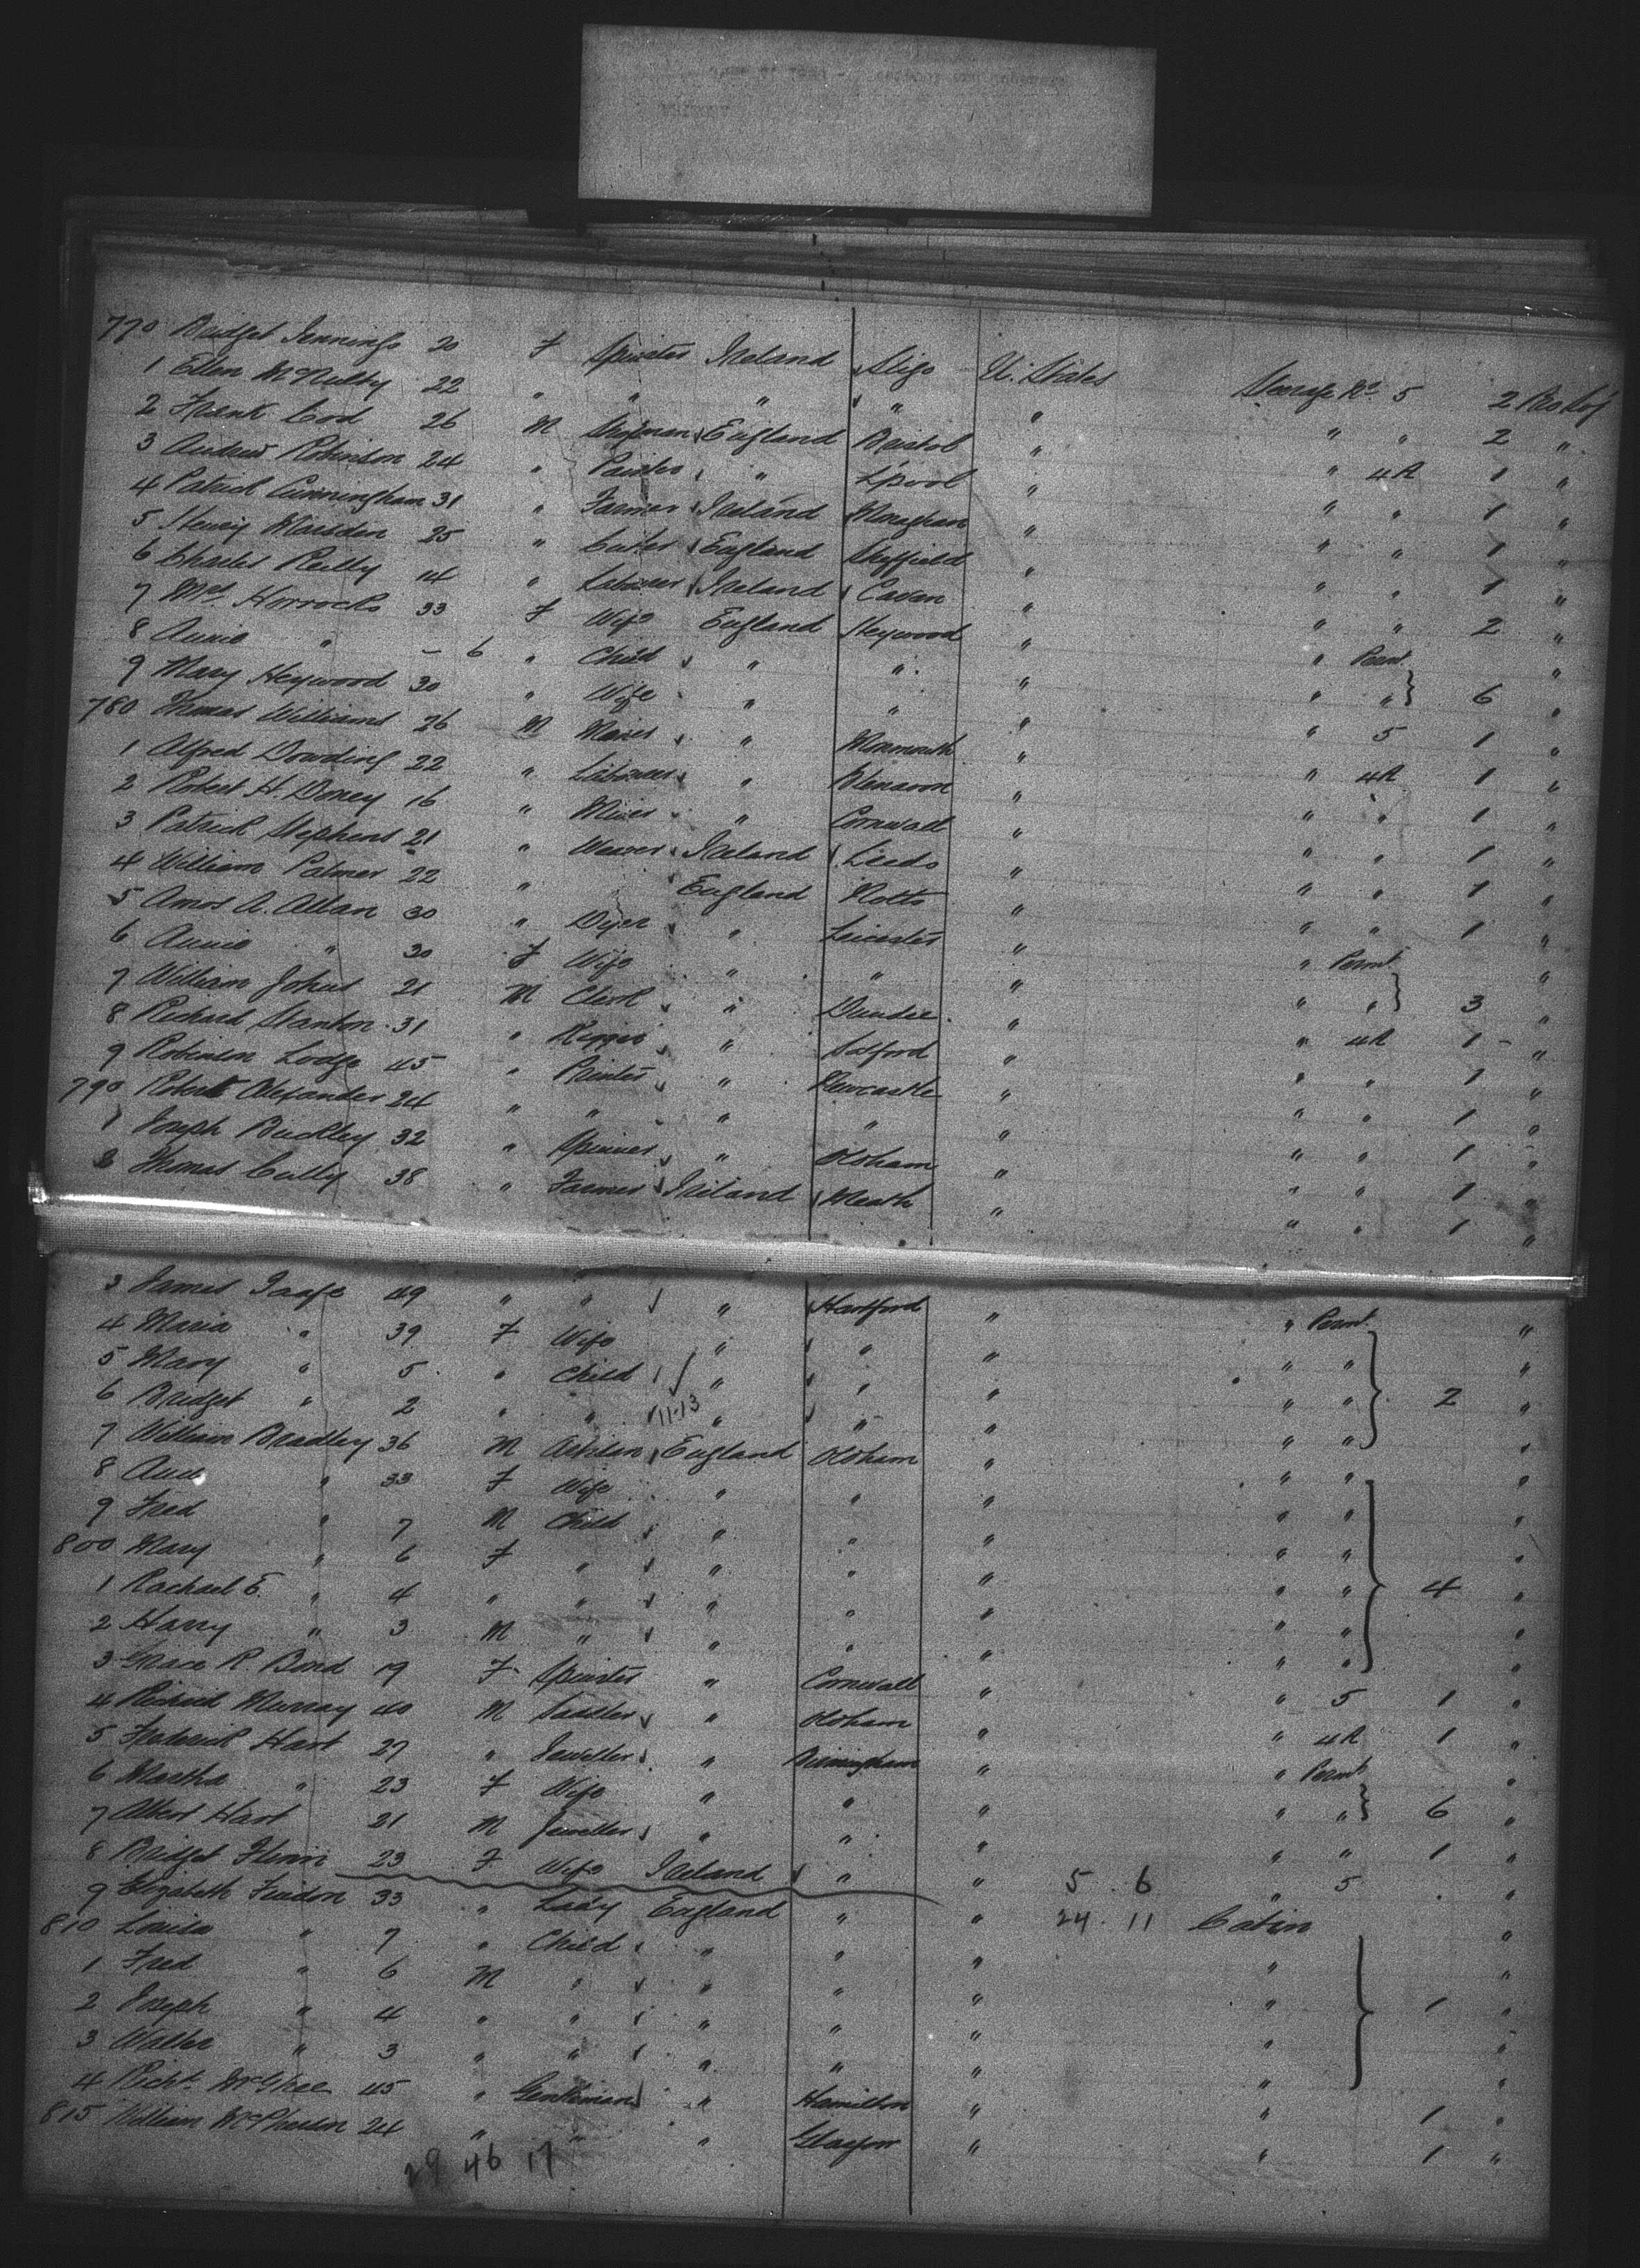 770 Bridget Jennings 20 F Spinster Ireland Sligo U. States Steerage No. 5 2
1 Ellen McNulty 22 " " " " " " " 2 "
2 Frank Cod 26 M England Bristol " " 4R 1 "
3 Andrew Robinson 24 " Painter " L'pool " " " 1 "
4 Patrick Cunningham 31 " Farmer Ireland Monaghan " " " 1 "
5 Henry Marsden 25 " Cutler England Sheffield " " " 1 "
6 Charles Reilly 14 " Labourer Ireland Cavan " " " 2 "
7 Mrs. Horrocks 33 F Wife England Heywood " "
8 Annie " - 6 " Child " " " " " 6 "
9 Mary Heywood 30 " Wife " " " " 5 1 "
780 Thomas Williams 26 M Miner " Monmouth " " 4R 1 "
1 Alfred Dowding 22 " Labourer " Blenavon " " " 1 "
2 Robert H. Doney 16 " Miner " Cornwall " " " 1 "
3 Patrick Stephens 21 " Weaver Ireland Leeds " " " 1 "
4 William Palmer 22 " England Notts " " " 1 "
5 Amos A. Allan 30 " Dyer " Leicester " "
6 Annie " 30 F Wife " " " " " 3 "
7 William Johns 21 M Clerk " Dundee " " 4R 1 "
8 Richard Stanton 31 " " Salford " " " 1 "
9 Robinson Lodge 45 " Printer " Newcastle " " " 1 "
790 Robert Alexander 24 " " " " " " " 1 "
1 Joseph Buckley 32 " Spinner " Oldham " " " 1 "
2 Thomas Cully 38 " Farmer Ireland Meath " " " 1 "
3 James Taafe 49 " " " Hartford " "
4 Maria " 39 F Wife " " " " "
5 Mary " 5 " Child " " " " " 2 "
6 Bridget " 2 " " 11-13 " " " " "
7 William Bradley 36 M England Oldham " " " "
8 " 33 F Wife " " " " " "
9 Fred " 7 M Child " " " " " "
800 Mary " 6 F " " " " " " 4 "
1 Rachael E. " 4 " " " " " " " "
2 Harry " 3 M " " " " " " "
3 Grace R. Bond 19 F Spinster " Cornwall " " 5 1 "
4 Richard Murray 40 M Saddler " Oldham " " 4R 1 "
5 Frederick Hart 27 " Jeweller " Birmingham " "
6 Martha " 23 F Wife " " " " " 6 "
7 Albert Hart 21 M Jeweller " " " " " 1 "
8 Bridget 23 F Wife Ireland " " 5 . 6 " 5 "
9 Elizabeth 33 " Lady England " " 24 . 11 Cabin "
810 Louisa " 7 " Child " " " " "
1 Fred " 6 M " " " " " 1 "
2 Joseph " 4 " " " " " " "
3 Walter " 3 " " " " " " "
4 Richd. McGhee 45 " Gentleman " Hamilton " " 1 "
815 William McPherson 24 " " " Glasgow " " 1 "
29 46 17